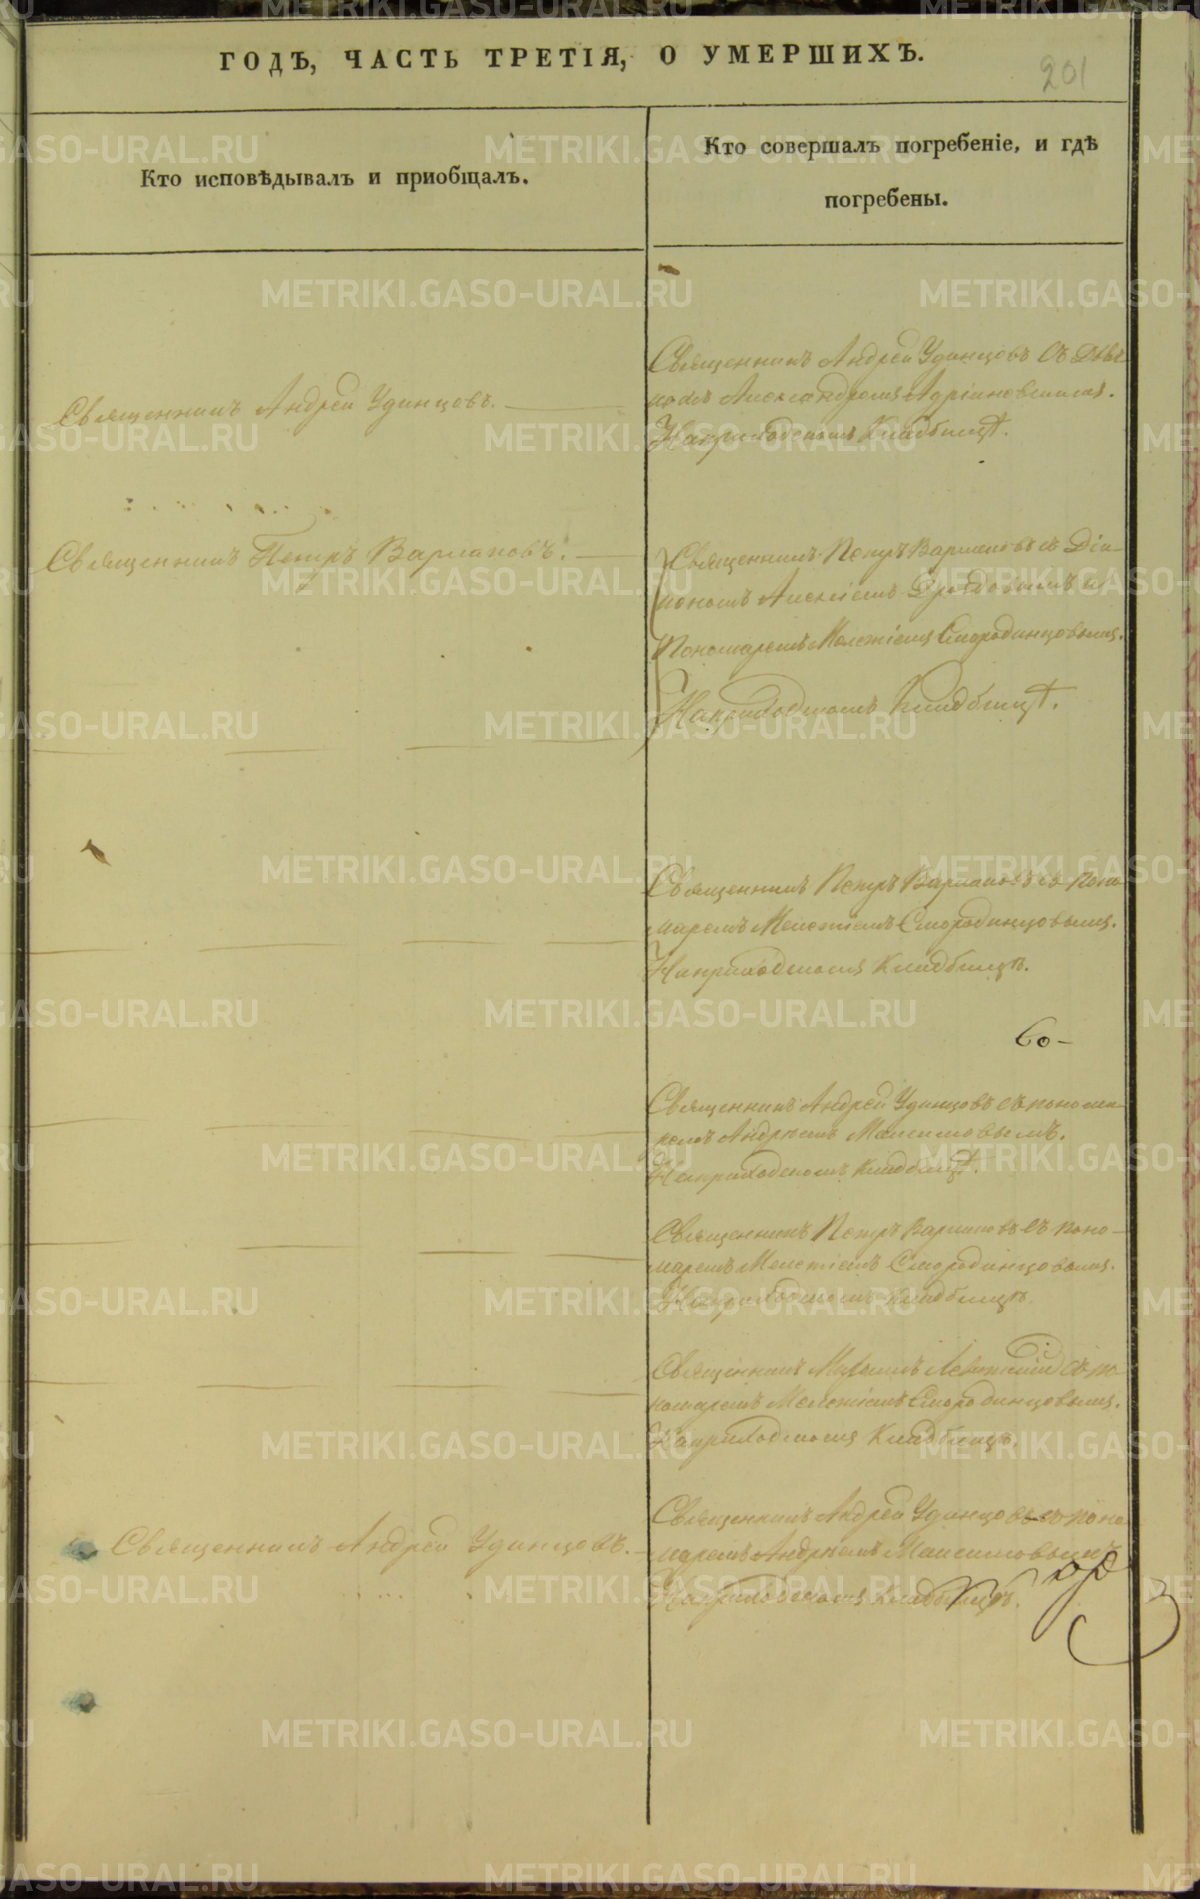 ГОДЪ, ЧАСТЬ ТРЕТІЯ, О УМЕРШИХЪ.
201
Кто исповѣдывалъ и пріобщалъ.
Кто совершалъ погребеніе, и гдѣ
погребены.
Священникъ Андрей Удинцовъ.
Священникъ Андрей Удинцовъ съ Дья
кономъ Александромъ Адріановскимъ.
На приходскомъ Кладбищѣ.
Священникъ Петръ Варлаковъ.
Священникъ Петръ Варлаковъ съ Діа-
кономъ Алексіемъ Дроздовымъ и
Пономаремъ Мелетіемъ Смородинцовымъ.
На приходскомъ Кладбищѣ.
Священникъ Петръ Варлаковъ съ Поно
маремъ Мелетіемъ Смородинцовымъ.
На приходскомъ Кладбищѣ.
Со-
Священникъ Андрей Удинцовъ съ понома
ремъ Андреемъ Максимовымъ.
На приходскомъ кладбищѣ.
Священникъ Петръ Варлаковъ съ поно-
маремъ Мелетіемъ Смородинцовымъ.
На приходскомъ кладбищѣ.
Священникъ съ по
номаремъ Мелетіемъ Смородинцовымъ.
На приходскомъ Кладбищѣ.
Священникъ Андрей Удинцовъ.
Священникъ Андрей Удинцовъ съ поно
маремъ Андреемъ Максимовымъ
На приходскомъ кладбищѣ.
METRIKI.GASO-URAL.RU